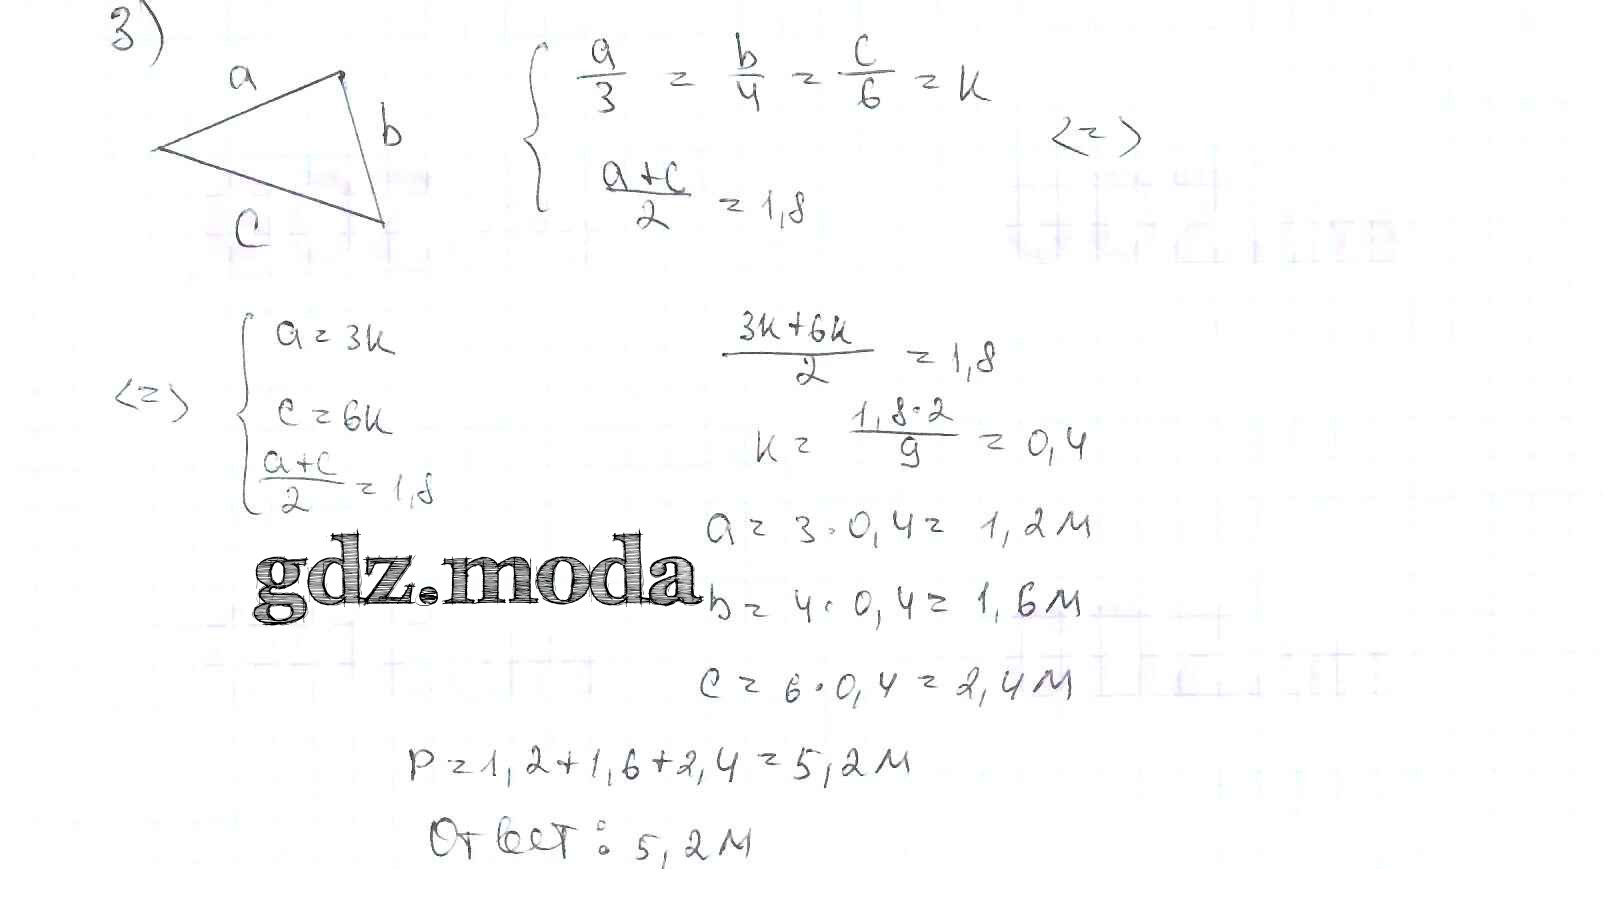 3)
a
b
c
a/3 = b/4 = c/6 = k
(a+c)/2 = 1,8
<=>
<=>
a = 3k
c = 6k
(a+c)/2 = 1,8
(3k+6k)/2 = 1,8
k = (1,8·2)/9 = 0,4
a = 3·0,4 = 1,2м
b = 4·0,4 = 1,6м
c = 6·0,4 = 2,4м
gdz.moda
P = 1,2+1,6+2,4 = 5,2м
Ответ: 5,2м